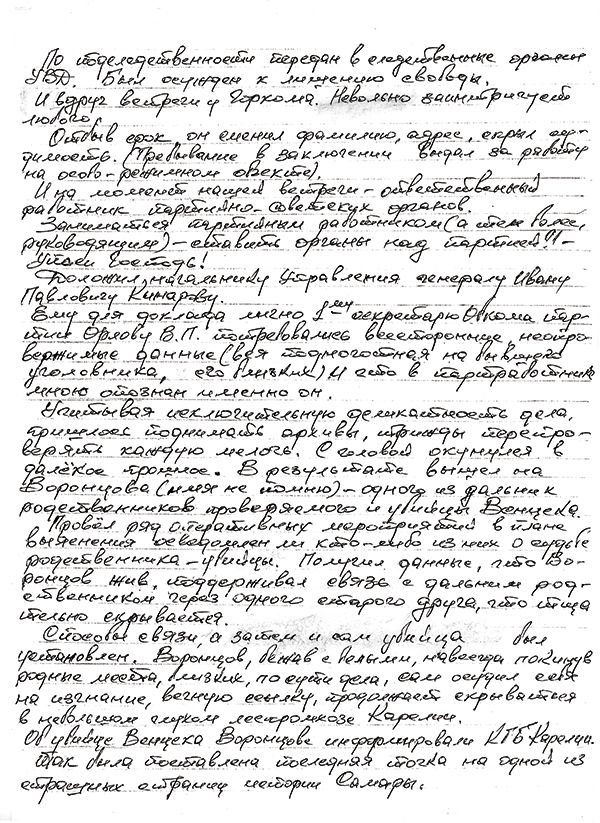 По подследственности передан в следственные органы
УВД. Был осужден к лишению свободы.
И вдруг встреча у Горкома. Невольно заинтригует
любого.
Отбыв срок он сменил фамилию, адрес, скрыл су-
димость. (Пребывание в заключении выдал за работу
на особо-режимном объекте).
И на момент нашей встречи - ответственный
работник партийно-советских органов.
Заниматься партийным работником (а тем более,
руководящим) - ставить органы над партией!! -
Упаси господь!
Доложил начальнику Управления генералу Ивану
Павловичу Кинарову.
Ему для доклада лично 1-му секретарю Обкома пар-
тии Орлову В.П. потребовались всесторонние неопро-
вержимые данные (вся подноготная на бывшего
уголовника, его близких) и что в партработнике
мною опознан именно он.
Учитывая исключительную деликатность дела,
пришлось поднимать архивы, трижды перепро-
верять каждую мелочь. С головой окунулся в
далёкое прошлое. В результате вышел на
Воронцова (имя не помню) - одного из дальник
родственников проверяемого и убийцы Венцека.
Провёл ряд оперативных мероприятий в плане
выяснения осведомлен ли кто-либо из них о судьбе
родственника - убийцы. Получил данные, что Во-
ронцов жив, поддерживал связь с дальним род-
ственником через одного старого друга, что тща
тельно скрывается.
Способы связи, а затем и сам убийца был
установлен. Воронцов, бежав с белыми, навсегда покинув
родные места, близких, по сути дела, сам осудил себя
на изгнание, вечную ссылку, продолжает скрываться
в небольшом глухом леспромхозе Карелии.
Об убийце Венцека Воронцове информировали КГБ Карелии.
Так была поставлена последняя точка на одной из
страшных страниц истории Самары.